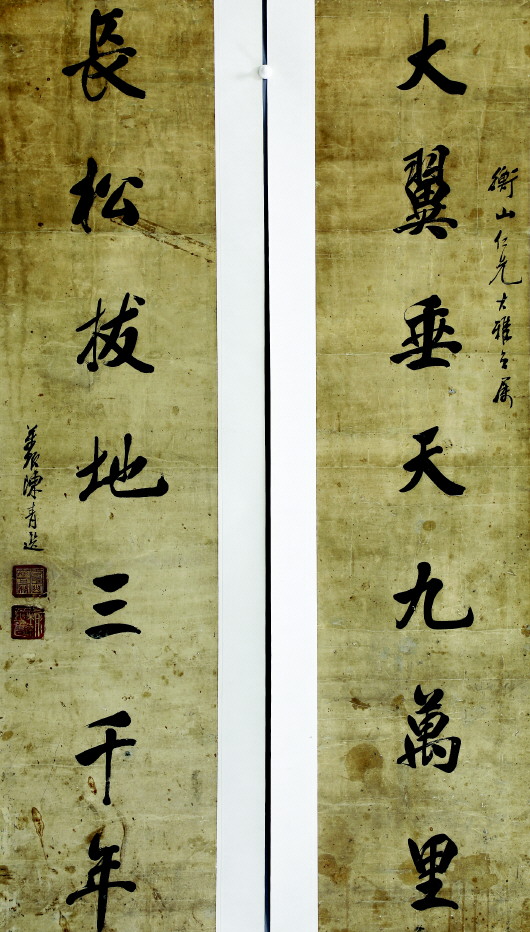 大翼垂天九萬里
衡山仁兄大雅之属
長松拔地三千年
陳青選